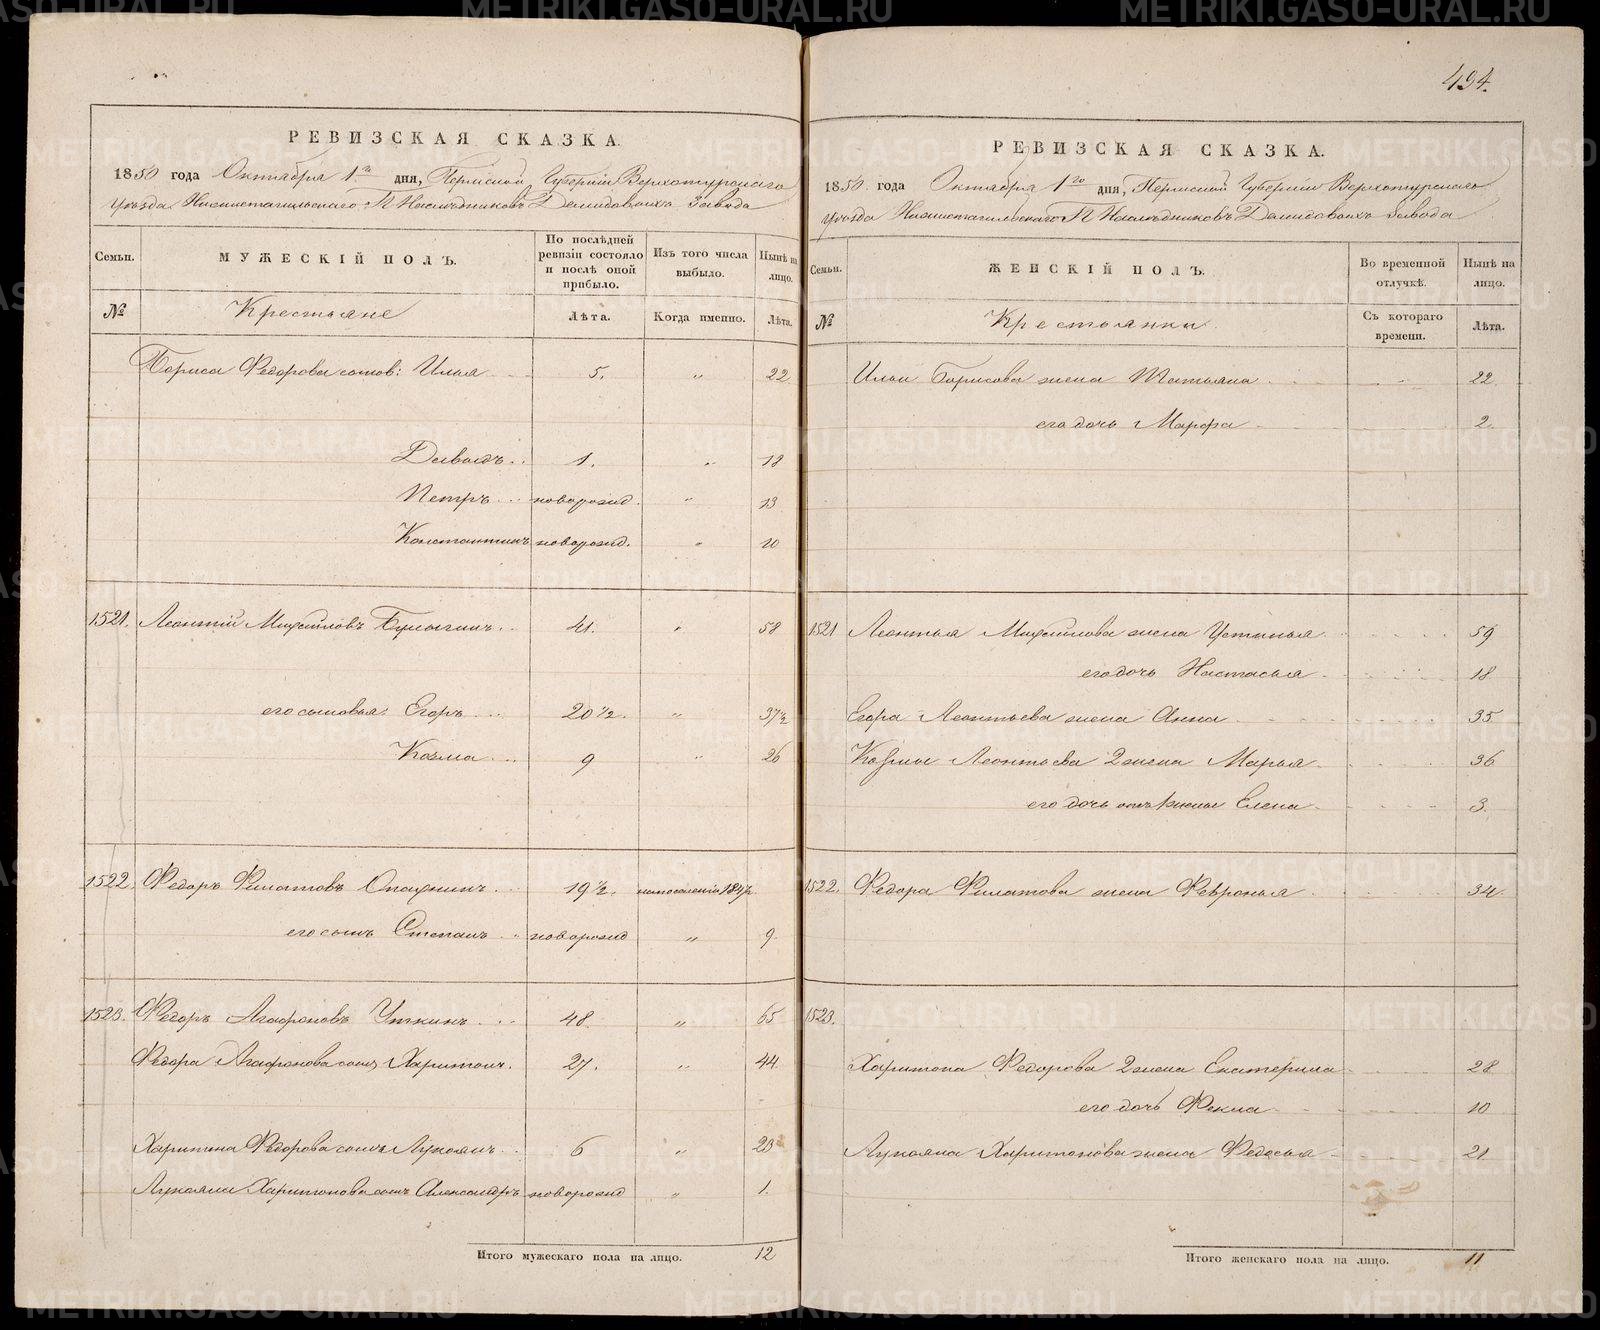 494.
РЕВИЗСКАЯ СКАЗКА.
1850 года Октября 1го дня, Пермской Губернiи Верхотурскаго
уѣзда Нижнетагильскаго П. Наслѣдниковъ Демидовыхъ Завода
Семьи.
МУЖЕСКІЙ ПОЛЪ.
По послѣдней ревизіи состояло и послѣ оной прибыло.
Изъ того числа выбыло.
Нынѣ на лицо.
№
Крестьяне
Лѣта.
Когда именно.
Лѣта.
Бориса Федорова сынов: Илья 5. " 22
Давыдъ 1. " 18
Петръ новорожд. " 13
Константинъ новорожд. " 10
1521. Леонтій Михайловъ Булыгинъ 41. " 58
его сыновья: Егоръ 20 1/2. " 37 1/2
Козма 9 " 26
1522. Федоръ Филатовъ 19 1/2. на поселенiе 184
его сынъ Степанъ новорожд " 9
1523. Федоръ Агафоновъ Уткинъ 48. " 65
Федора Агафонова сынъ Харитонъ. 27. " 44
Харитона Федорова сынъ Лукоянъ 6 " 23
Лукояна Харитонова сынъ Александръ новорожд " 1.
Итого мужескаго пола на лицо. 12
РЕВИЗСКАЯ СКАЗКА.
1850. года Октября 1го дня, Пермской Губернiи Верхотурскаго
уѣзда Нижнетагильскаго П. Наслѣдниковъ Демидовыхъ Завода
Семьи.
ЖЕНСКІЙ ПОЛЪ.
Во временной отлучкѣ.
Нынѣ на лицо.
№
Крестьянки
Съ котораго времени.
Лѣта.
Ильи Борисова жена Татьяна 22
его дочь Марфа 2
1521 Леонтья Михайлова жена Устинья 59
его дочь Настасья 18
Егора Леонтьева жена Анна 35
Козмы Леонтьева 2 жена Марья 36
его дочь отъ 1 жены Елена 3
1522. Федора Филатова жена Февронья 34
1523.
Харитона Федорова 2 жена Екатерина 28
его дочь Фекла 10
Лукояна Харитонова жена Федосья 21
Итого женскаго пола на лицо. 11
METRIKI.GASO-URAL.RU